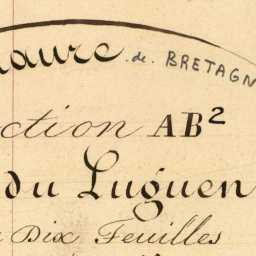 de BRETAGN
ction AB²
du Luguen
Dix Feuilles